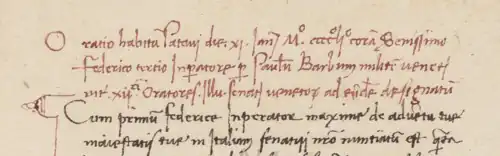 Oratio habita Patavi die xi Janˢ Mº ccccºliº corā Serēissimo
Federico tertio Inperatore p Paulū Barbum militē venetū
inter xii Oratores Illu. senatˢ venetorū ad eūde designatū
Cum primum federice inperator maxime de adventu tue
maiestatis tue in Italiam senatui nr̄o nuntiatū est